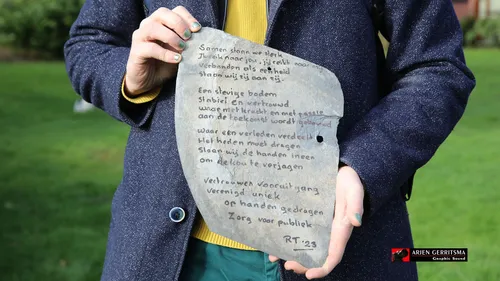 Samen staan we sterk
Ik reik naar jou, jij reikt naar mij
Verbonden als eenheid
staan wij zij aan zij.
Een stevige bodem
stabiel en vertrouwd
waar met kracht en met passie
aan de toekomst wordt gebouwd
Waar een verleden verdacht
Het heden moet dragen
Slaan wij de handen ineen
om de kou te verjagen
Vertrouwen vooruitgang
verenigd uniek
op handen gedragen
Zorg voor publiek
RT '23
ARJEN GERRITSMA
Graphic Sound